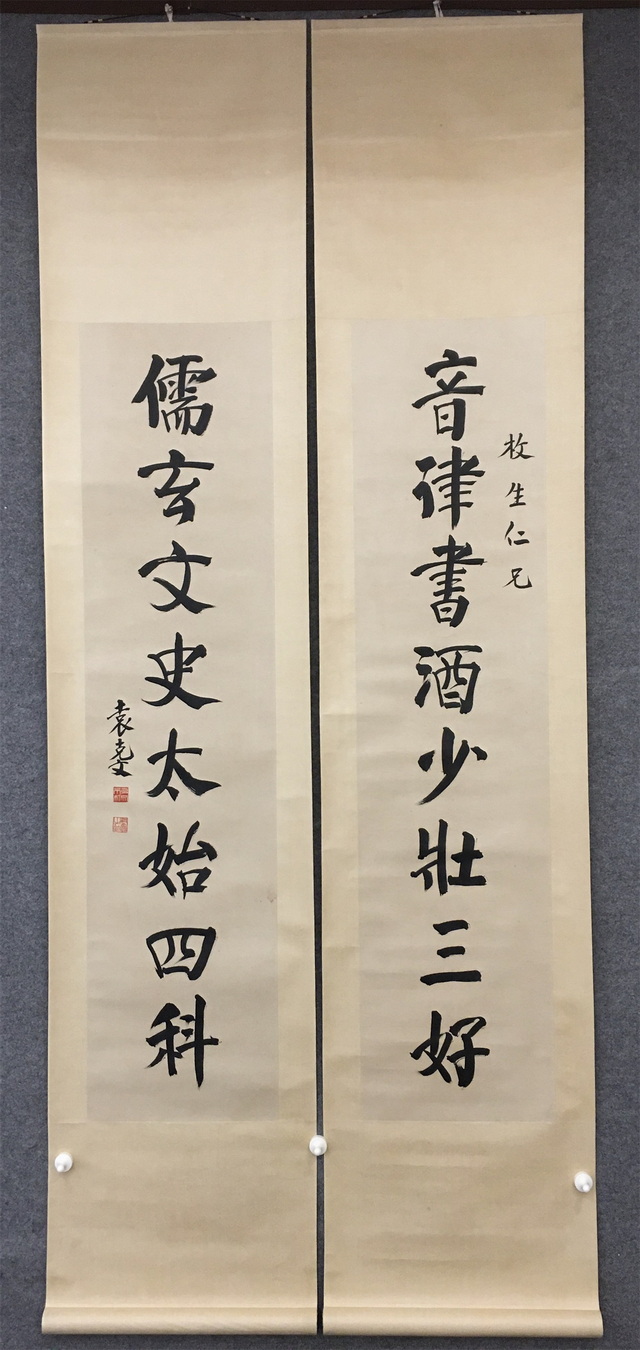 枚生仁兄
音律書酒少壯三好
儒玄文史太始四科
袁克文